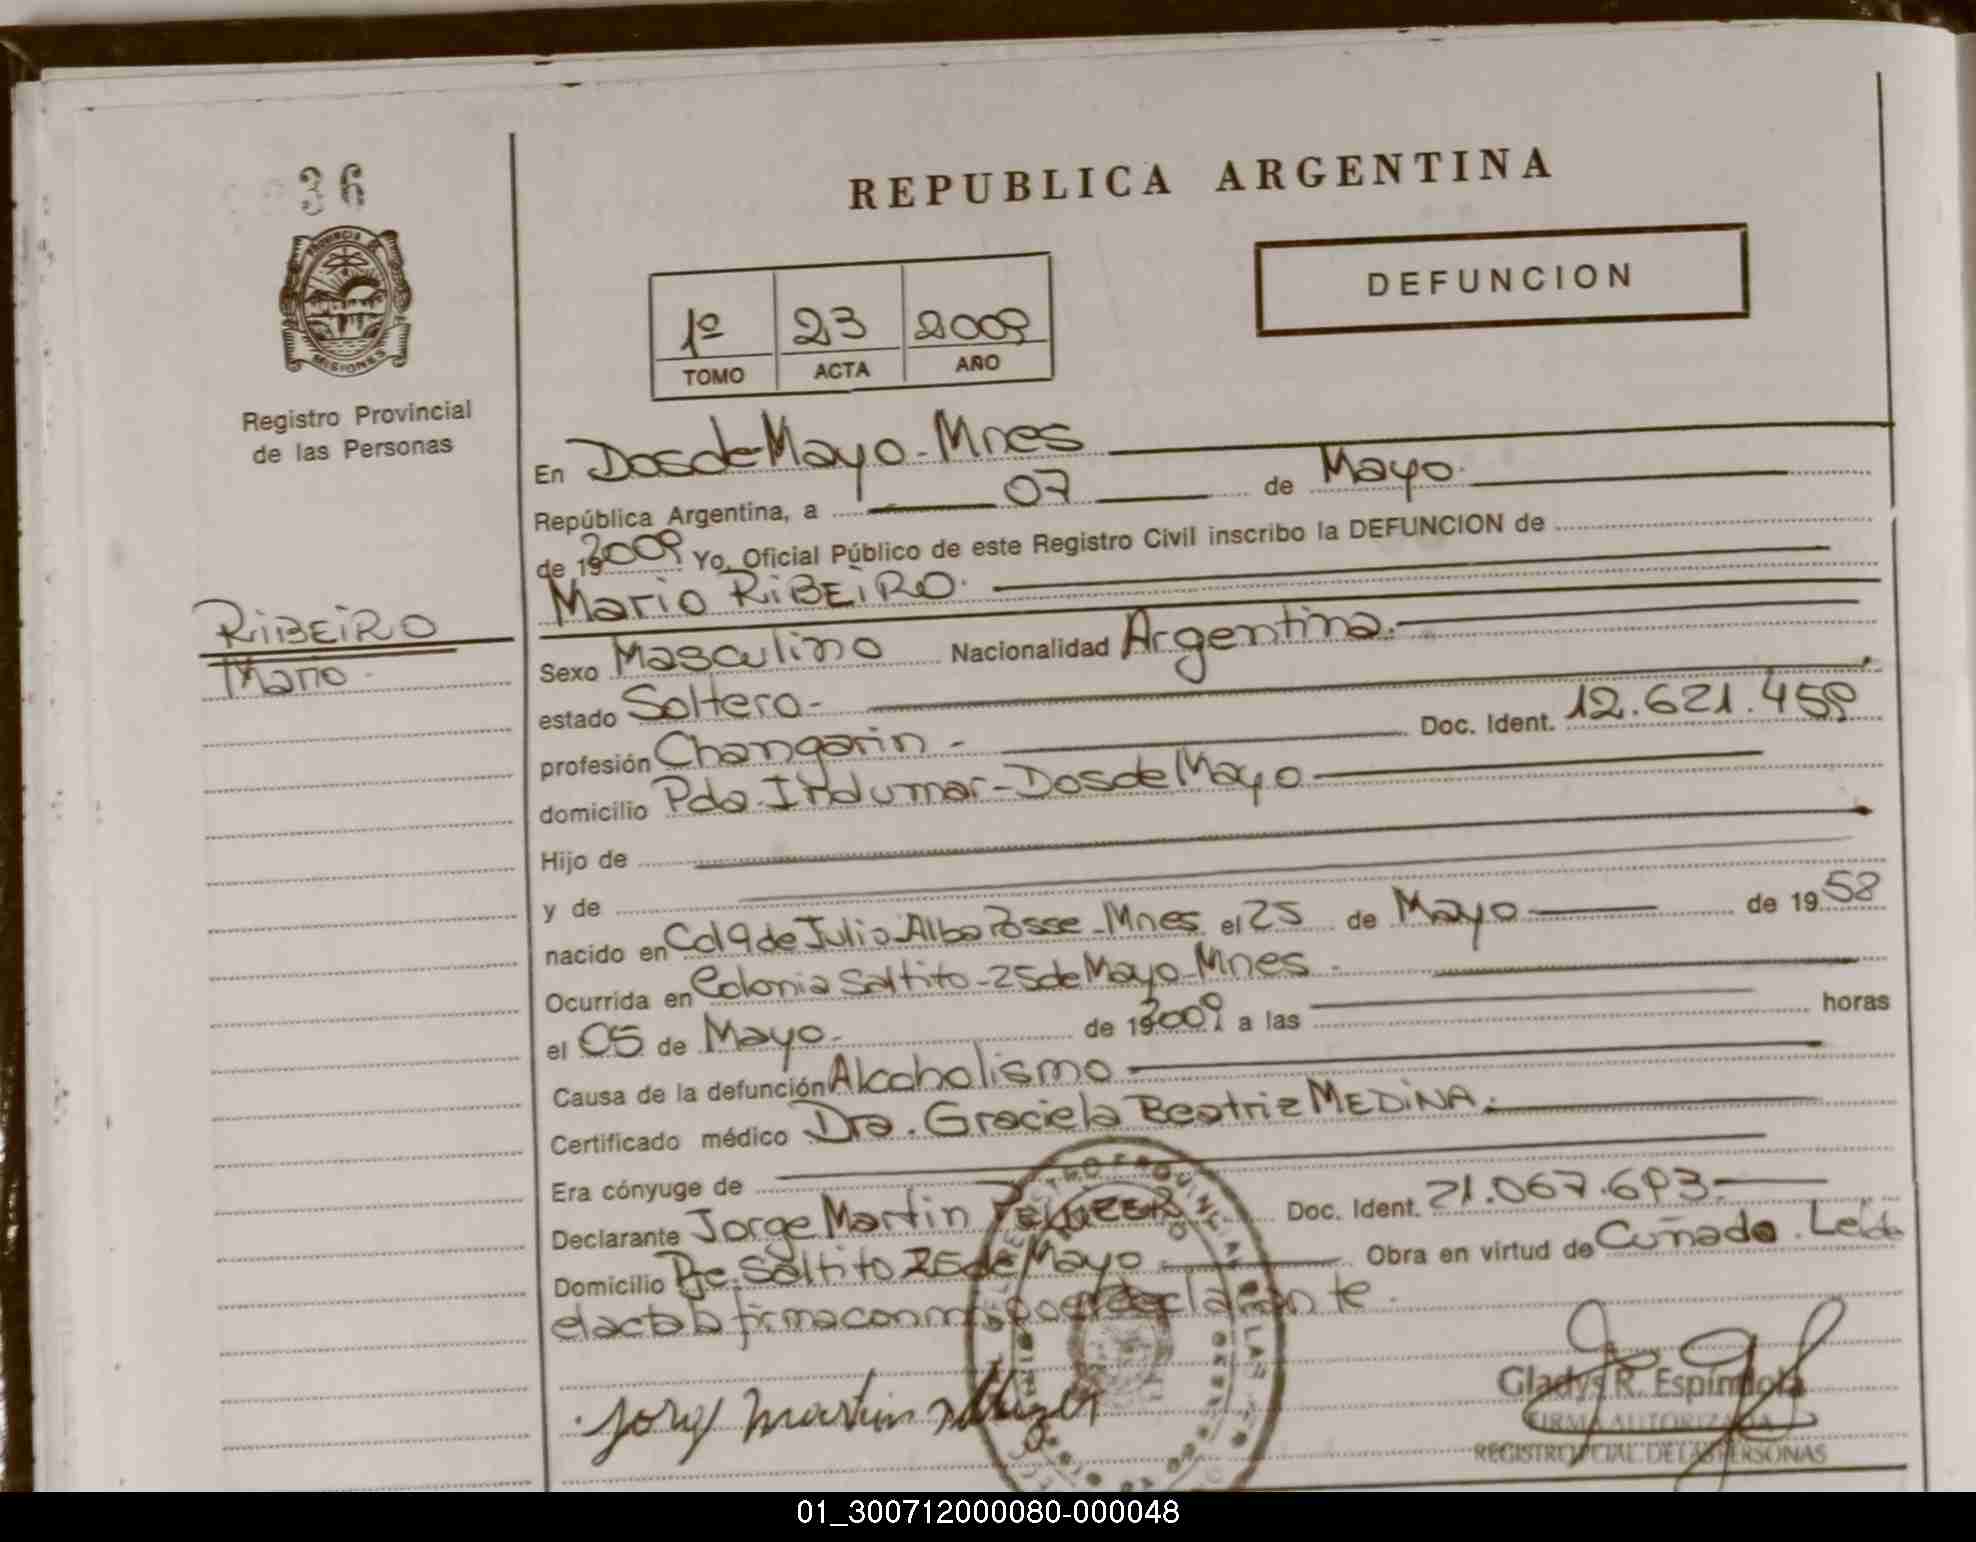 36
PROVINCIA DE
MISIONES
Registro Provincial
de las Personas
REPUBLICA ARGENTINA
DEFUNCION
1º 23 2009
TOMO ACTA AÑO
RIBEIRO
Mario.
En Dos de Mayo - Mnes
República Argentina, a 07 de Mayo.
de 192009 Yo, Oficial Público de este Registro Civil inscribo la DEFUNCION de
Mario RIBEIRO.
Sexo Masculino Nacionalidad Argentina.
estado Soltero -
profesión Changarin - Doc. Ident. 12.621.459
domicilio Pdo. Indumar - Dos de Mayo
Hijo de
y de
nacido en Col 9 de Julio Alba Posse - Mnes el 25 de Mayo de 19 58
Ocurrida en Colonia Saltito - 25 de Mayo - Mnes -
el 05 de Mayo. de 192009 a las horas
Causa de la defunción Alcoholismo
Certificado médico Dra. Graciela Beatriz MEDINA.
Era cónyuge de
Declarante Jorge Martin Doc. Ident. 21.067.693.
Domicilio Pje. Saltito 25 de Mayo Obra en virtud de Cuñado. Leida
el acta la firma con migo el declarante.
Jorge Martin
Gladys R. Espíndola
FIRMA AUTORIZADA
REGISTRO PCIAL. DE LAS PERSONAS
01_300712000080-000048